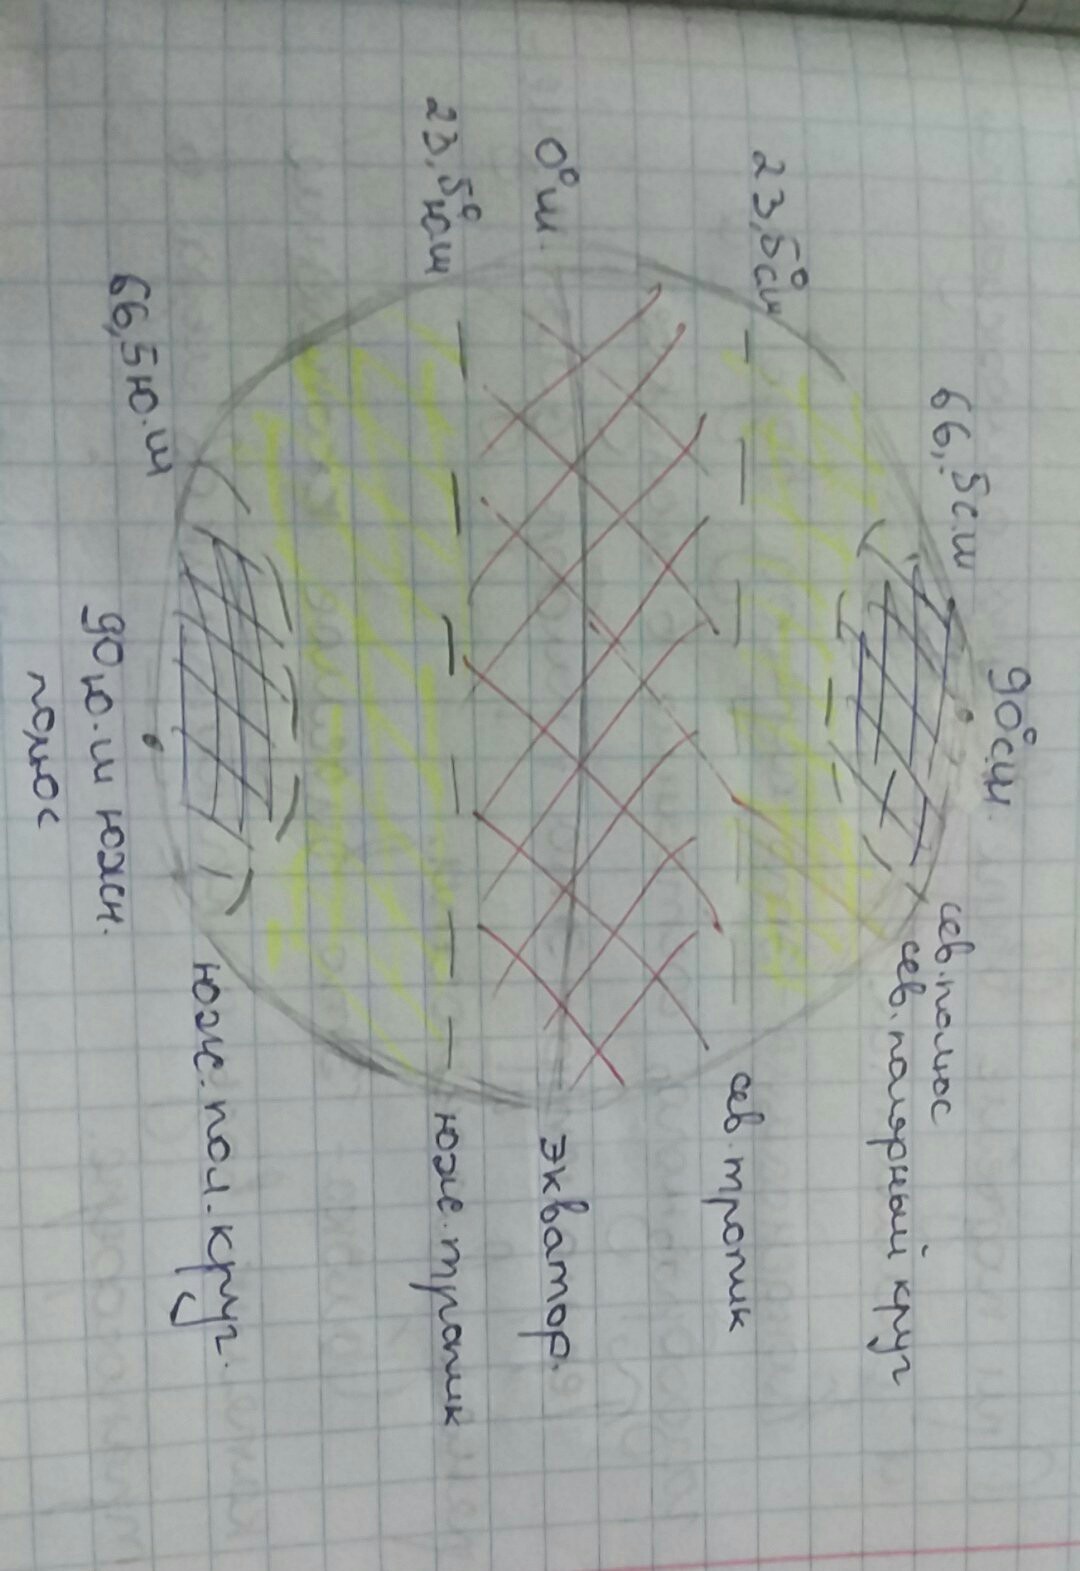 90° с.ш.
сев. полюс
66,5 сш
сев. полярный круг
23,5° сш
сев. тропик
0° ш.
экватор.
23,5° юш
юж. тропик
66,5 ю.ш
юж. пол. круг.
90 ю.ш южн.
полюс